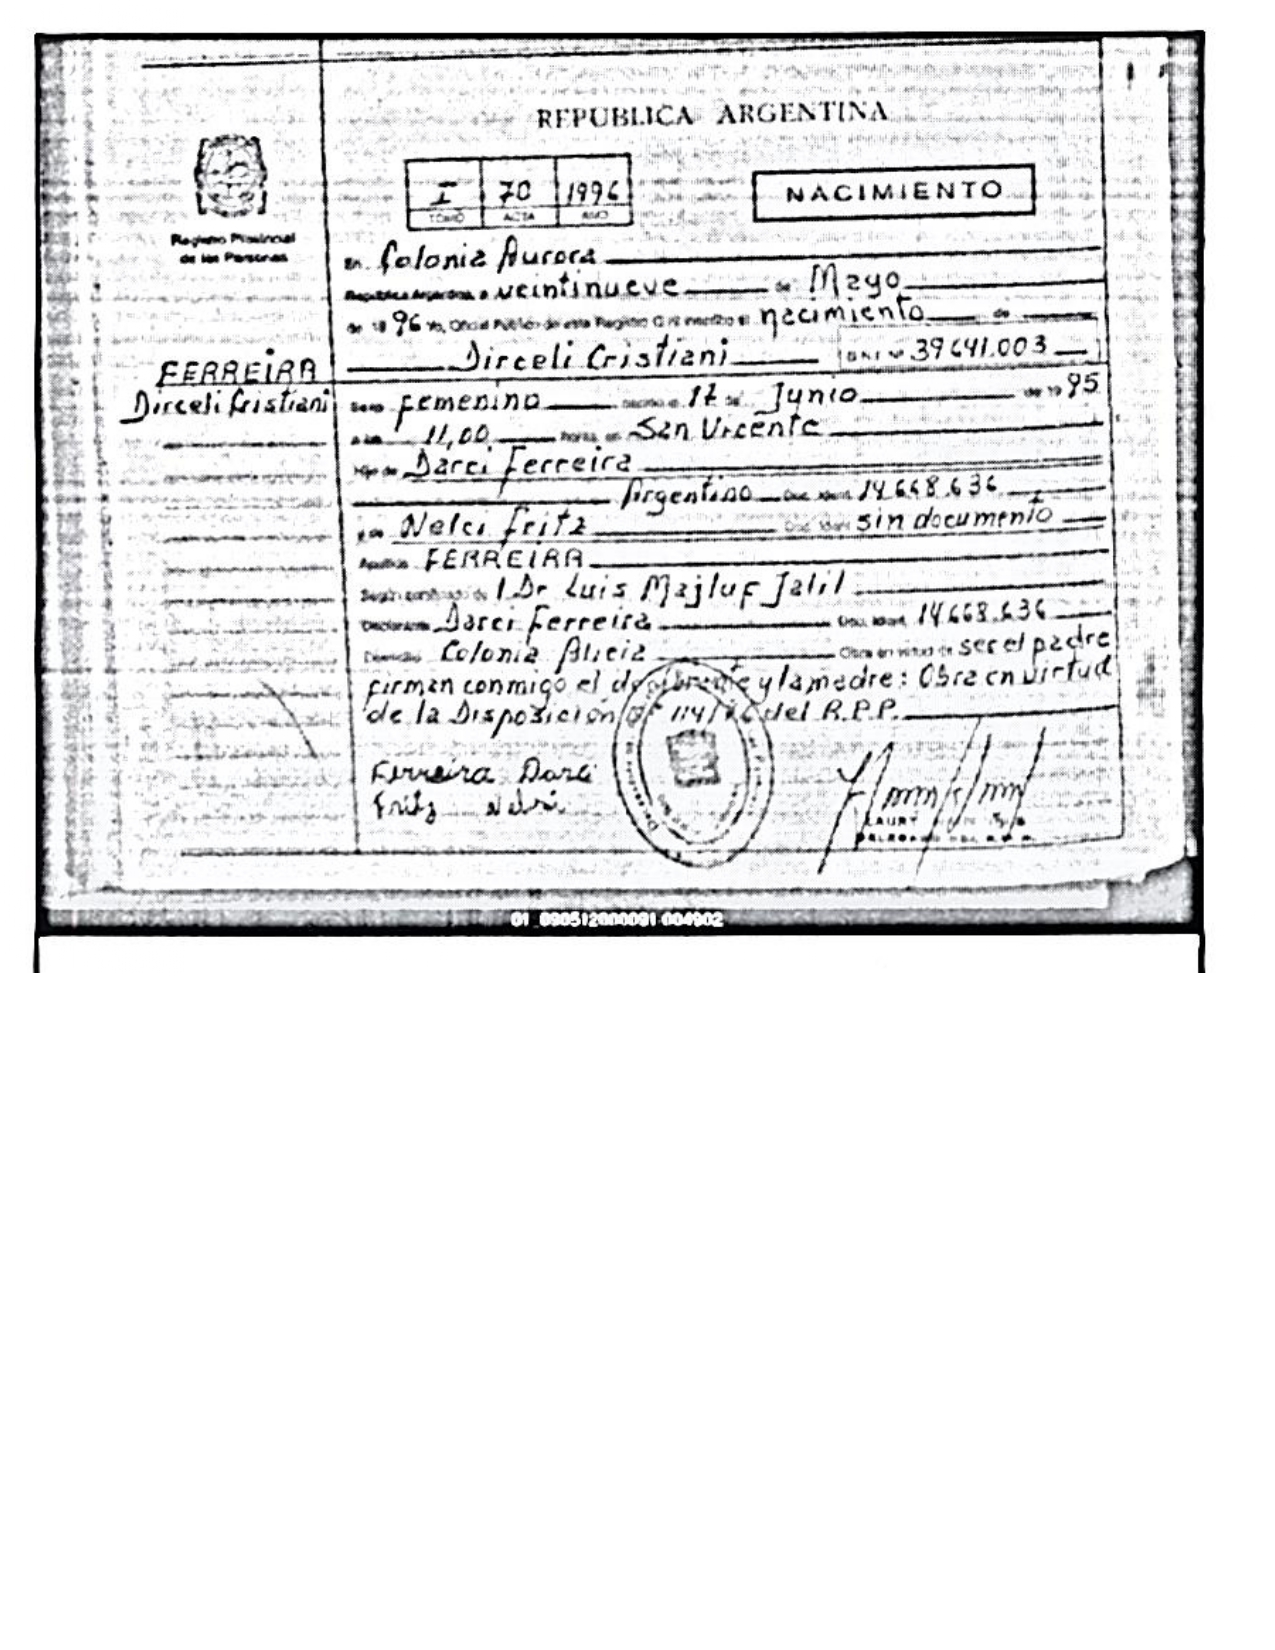 REPUBLICA ARGENTINA
I 70 1996
TOMO ACTA AÑO
NACIMIENTO
Registro Provincial
de las Personas
En Colonia Aurora
República Argentina, a veintinueve de Mayo
de 19 96 Yo, Oficial Público de este Registro Civil inscribo el nacimiento de
Dirceli Cristiani DNI Nº 39641.003
FERREIRA
Dirceli Cristiani
Sexo femenino de Junio de 19 95
a las 11,00 horas, en San Vicente
Hijo de Darci Ferreira
Argentino Doc. Ident. 14.668.636
y de Nelci Fritz Doc. Ident. sin documento
Apellido FERREIRA
Según certificado de l Dr Luis Majluf Jalil
Declarante Darci Ferreira Doc. Ident. 14.668.636
Domicilio Colonia Alicia Obra en virtud de ser el padre
firman conmigo el declarante y la madre: Obra en virtud
de la Disposición del R.P.P.
Ferreira Darci
Fritz Nelci
01_090512000091-004902